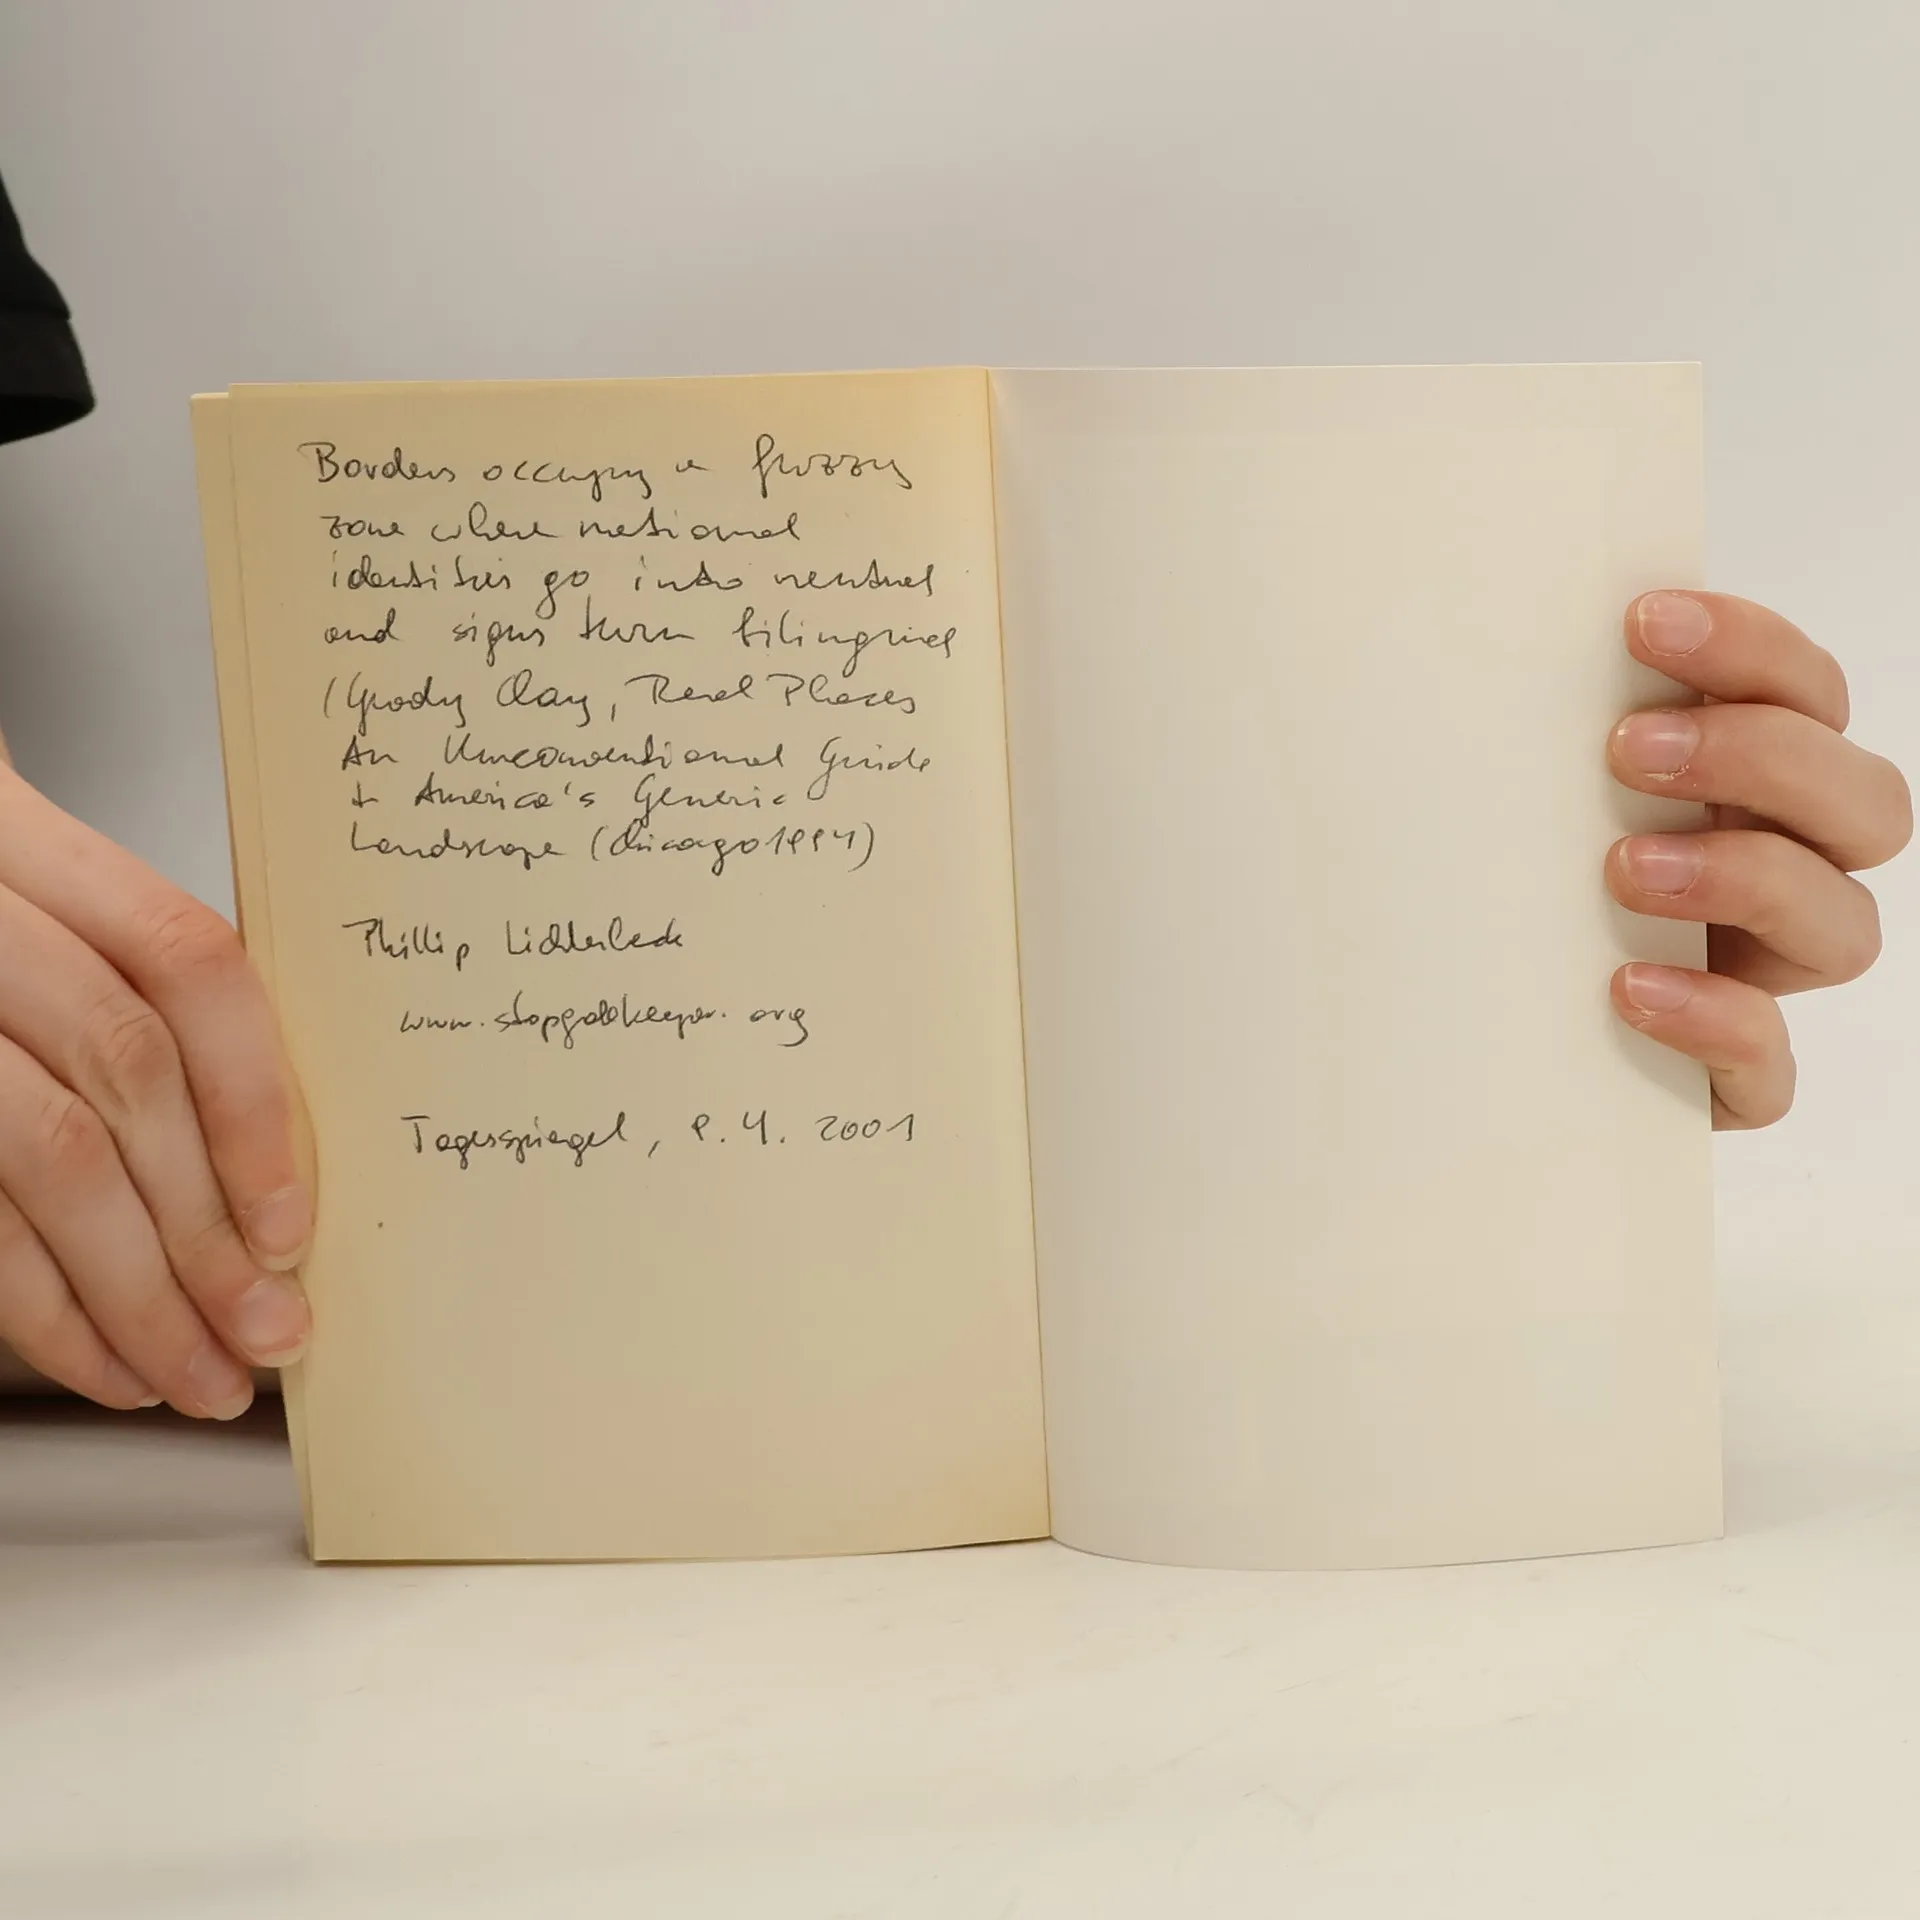 Borders occupy a fuzzy
zone where national
identities go into neutral
and signs turn bilingual
(Grady Clay, Real Places
An Unconventional Guide
t America's Generic
Landscape (Chicago 1994)
Phillip
www.stopgatekeeper.org
Tagesspiegel, 9. 4. 2001